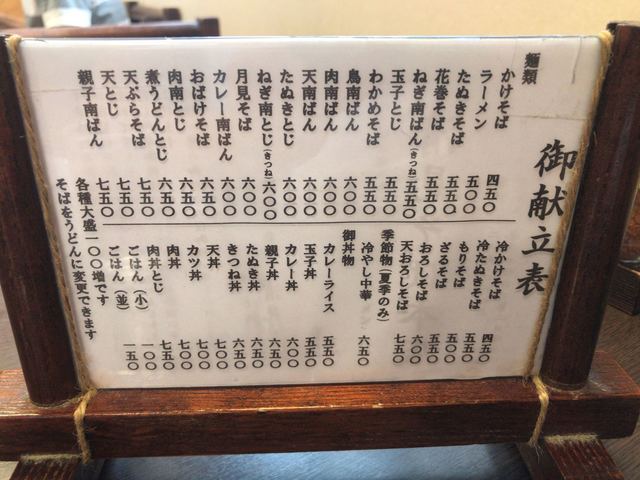 御献立表
麺類
かけそば 四五〇
ラーメン 五〇〇
たぬきそば 五五〇
花巻そば 五五〇
ねぎ南ばん(きつね) 五五〇
玉子とじ 五五〇
わかめそば 五五〇
鳥南ばん 六〇〇
肉南ばん 六〇〇
天南ばん 六〇〇
たぬきとじ 六〇〇
ねぎ南とじ(きつね) 六〇〇
月見そば 六〇〇
カレー南ばん 六五〇
おばけそば 六五〇
肉南とじ 六五〇
煮うどんとじ 七五〇
天ぷらそば 七五〇
天とじ 七五〇
親子南ばん 七五〇
冷かけそば 四五〇
冷たぬきそば 五五〇
もりそば 五〇〇
ざるそば 五五〇
おろしそば 六〇〇
天おろしそば 七五〇
季節物（夏季のみ）
冷やし中華 六五〇
御丼物
カレーライス 五五〇
玉子丼 五五〇
カレー丼 六〇〇
親子丼 六五〇
たぬき丼 六五〇
きつね丼 六五〇
天丼 七〇〇
カツ丼 七〇〇
肉丼 七〇〇
肉丼とじ 七五〇
ごはん（小） 一〇〇
ごはん（並） 一五〇
各種大盛一〇〇増です
そばをうどんに変更できます